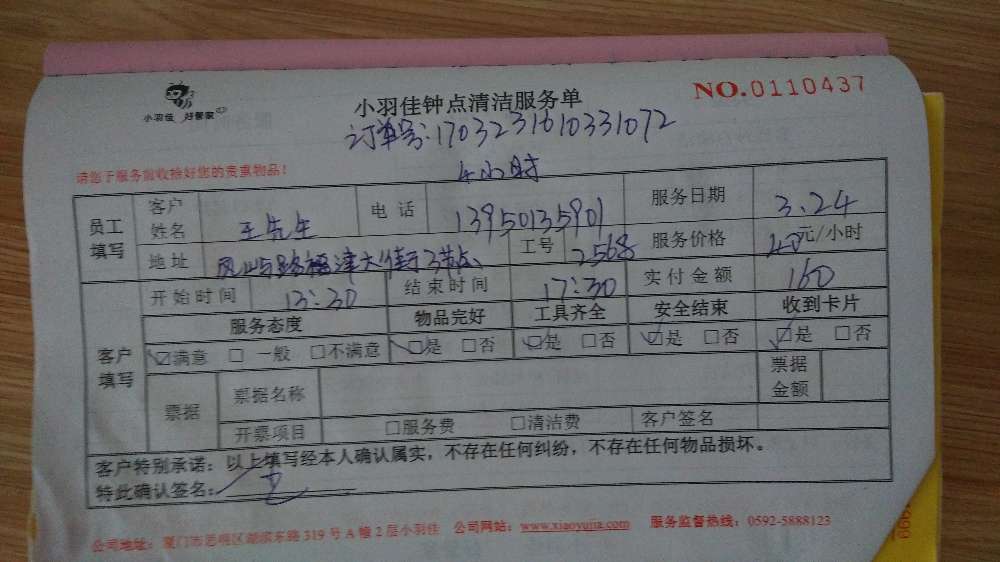 小羽佳 好管家
小羽佳钟点清洁服务单
NO.0110437
订单号:1703231610331072
请您于服务前收拾好您的贵重物品!
4小时
员工填写 客户姓名 王先生 电话 13950135901 服务日期 3.24
地址 凤屿路福津大街 工号 2568 服务价格 40元/小时
客户填写 开始时间 13:30 结束时间 17:30 实付金额 160
服务态度 物品完好 工具齐全 安全结束 收到卡片
☑满意 □一般 □不满意 ☑是 □否 ☑是 □否 ☑是 □否 ☑是 □否
票据 票据名称 票据金额
开票项目 □服务费 □清洁费 客户签名
客户特别承诺:以上填写经本人确认属实,不存在任何纠纷,不存在任何物品损坏。
特此确认签名: 王
公司地址:厦门市思明区湖滨东路319号A幢2层小羽佳 公司网站:www.xiaoyujia.com 服务监督热线:0592-5888123